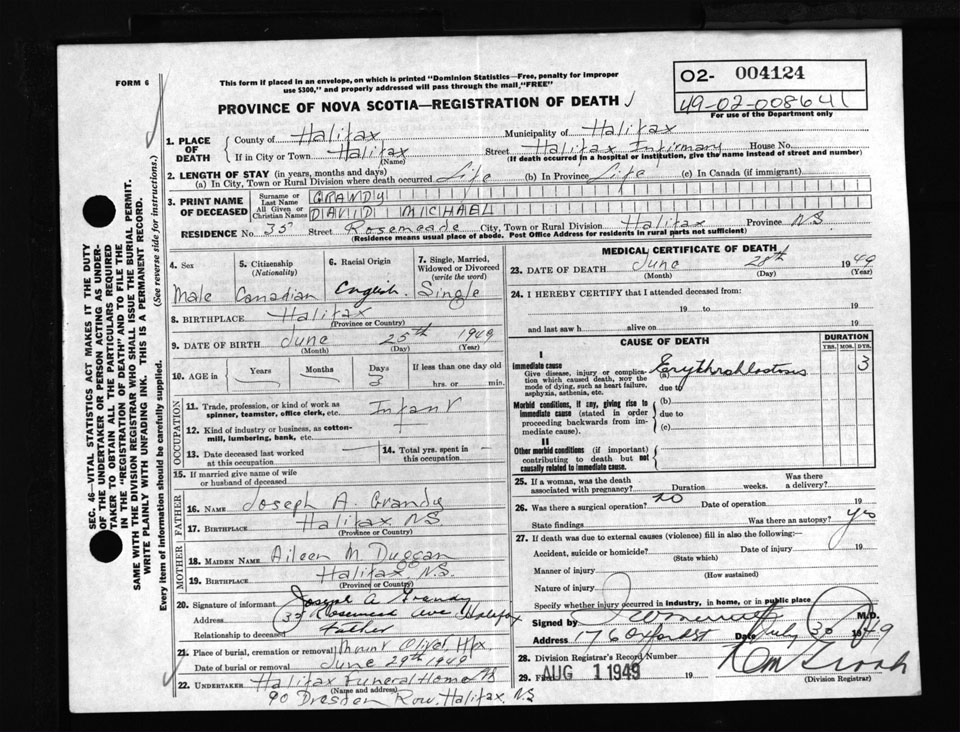 FORM 6
This form if placed in an envelope, on which is printed "Dominion Statistics—Free, penalty for improper
use $300," and properly addressed will pass through the mail, "FREE"
PROVINCE OF NOVA SCOTIA—REGISTRATION OF DEATH
02- 004124
49-02-008641
For use of the Department only
1. PLACE OF DEATH
County of Halifax Municipality of Halifax
If in City or Town Halifax Street Halifax Infirmary House No.
(Name) (If death occurred in a hospital or institution, give the name instead of street and number)
2. LENGTH OF STAY (in years, months and days)
(a) In City, Town or Rural Division where death occurred. Life (b) In Province Life (c) In Canada (if immigrant)
3. PRINT NAME OF DECEASED
Surname or Last Name GRANDY
All Given or Christian Names DAVID MICHAEL
RESIDENCE No. 35 Street Rosemeade City, Town or Rural Division Halifax Province N.S.
(Residence means usual place of abode. Post Office Address for residents in rural parts not sufficient)
4. Sex
Male
5. Citizenship
(Nationality)
Canadian
6. Racial Origin
English
7. Single, Married,
Widowed or Divorced
(write the word)
Single
8. BIRTHPLACE Halifax
(Province or Country)
9. DATE OF BIRTH June 25th 1949
(Month) (Day) (Year)
10. AGE in Years Months Days 3 If less than one day old
hrs. or min.
OCCUPATION
11. Trade, profession, or kind of work as
spinner, teamster, office clerk, etc. Infant
12. Kind of industry or business, as cotton-
mill, lumbering, bank, etc.
13. Date deceased last worked
at this occupation
14. Total yrs. spent in
this occupation
15. If married give name of wife
or husband of deceased
FATHER
16. NAME Joseph A. Grandy
17. BIRTHPLACE Halifax N.S.
(Province or Country)
MOTHER
18. MAIDEN NAME Aileen M. Duggan
19. BIRTHPLACE Halifax N.S.
(Province or Country)
20. Signature of informant Joseph A Grandy
Address 35 Rosemead Ave Halifax
Relationship to deceased Father
21. Place of burial, cremation or removal Mount Olivet Hfx
Date of burial or removal June 29th 1949
22. UNDERTAKER Halifax Funeral Home
(Name and address)
90 Dresden Row, Halifax N.S
MEDICAL CERTIFICATE OF DEATH
23. DATE OF DEATH June 28th 1949
(Month) (Day) (Year)
24. I HEREBY CERTIFY that I attended deceased from:
19 to 19
and last saw h alive on 19
CAUSE OF DEATH
DURATION
YRS. MOS. DYS.
I
Immediate cause
Give disease, injury or complica-
tion which caused death, NOT the
mode of dying, such as heart failure,
asphyxia, asthenia, etc.
(a) Erythroblastosis 3
due to
Morbid conditions, if any, giving rise to
immediate cause (stated in order
proceeding backwards from im-
mediate cause).
(b)
due to
(c)
II
Other morbid conditions (if important)
contributing to death but not
causally related to immediate cause.
25. If a woman, was the death
associated with pregnancy? Duration weeks. Was there
a delivery?
26. Was there a surgical operation? no Date of operation 19
State findings Was there an autopsy? yes
27. If death was due to external causes (violence) fill in also the following:—
Accident, suicide or homicide? Date of injury 19
(State which)
Manner of injury
(How sustained)
Nature of injury
Specify whether injury occurred in industry, in home, or in public place
Signed by M.D.
Address 176 Oxford St Date July 30 1949
28. Division Registrar's Record Number
29. Filed AUG 1 1949 19
(Division Registrar)
SEC. 46—VITAL STATISTICS ACT MAKES IT THE DUTY
OF THE UNDERTAKER OR PERSON ACTING AS UNDER-
TAKER TO OBTAIN ALL THE PARTICULARS REQUIRED
IN THE "REGISTRATION OF DEATH" AND TO FILE THE
SAME WITH THE DIVISION REGISTRAR WHO SHALL ISSUE THE BURIAL PERMIT.
WRITE PLAINLY WITH UNFADING INK. THIS IS A PERMANENT RECORD.
Every item of information should be carefully supplied. (See reverse side for instructions.)